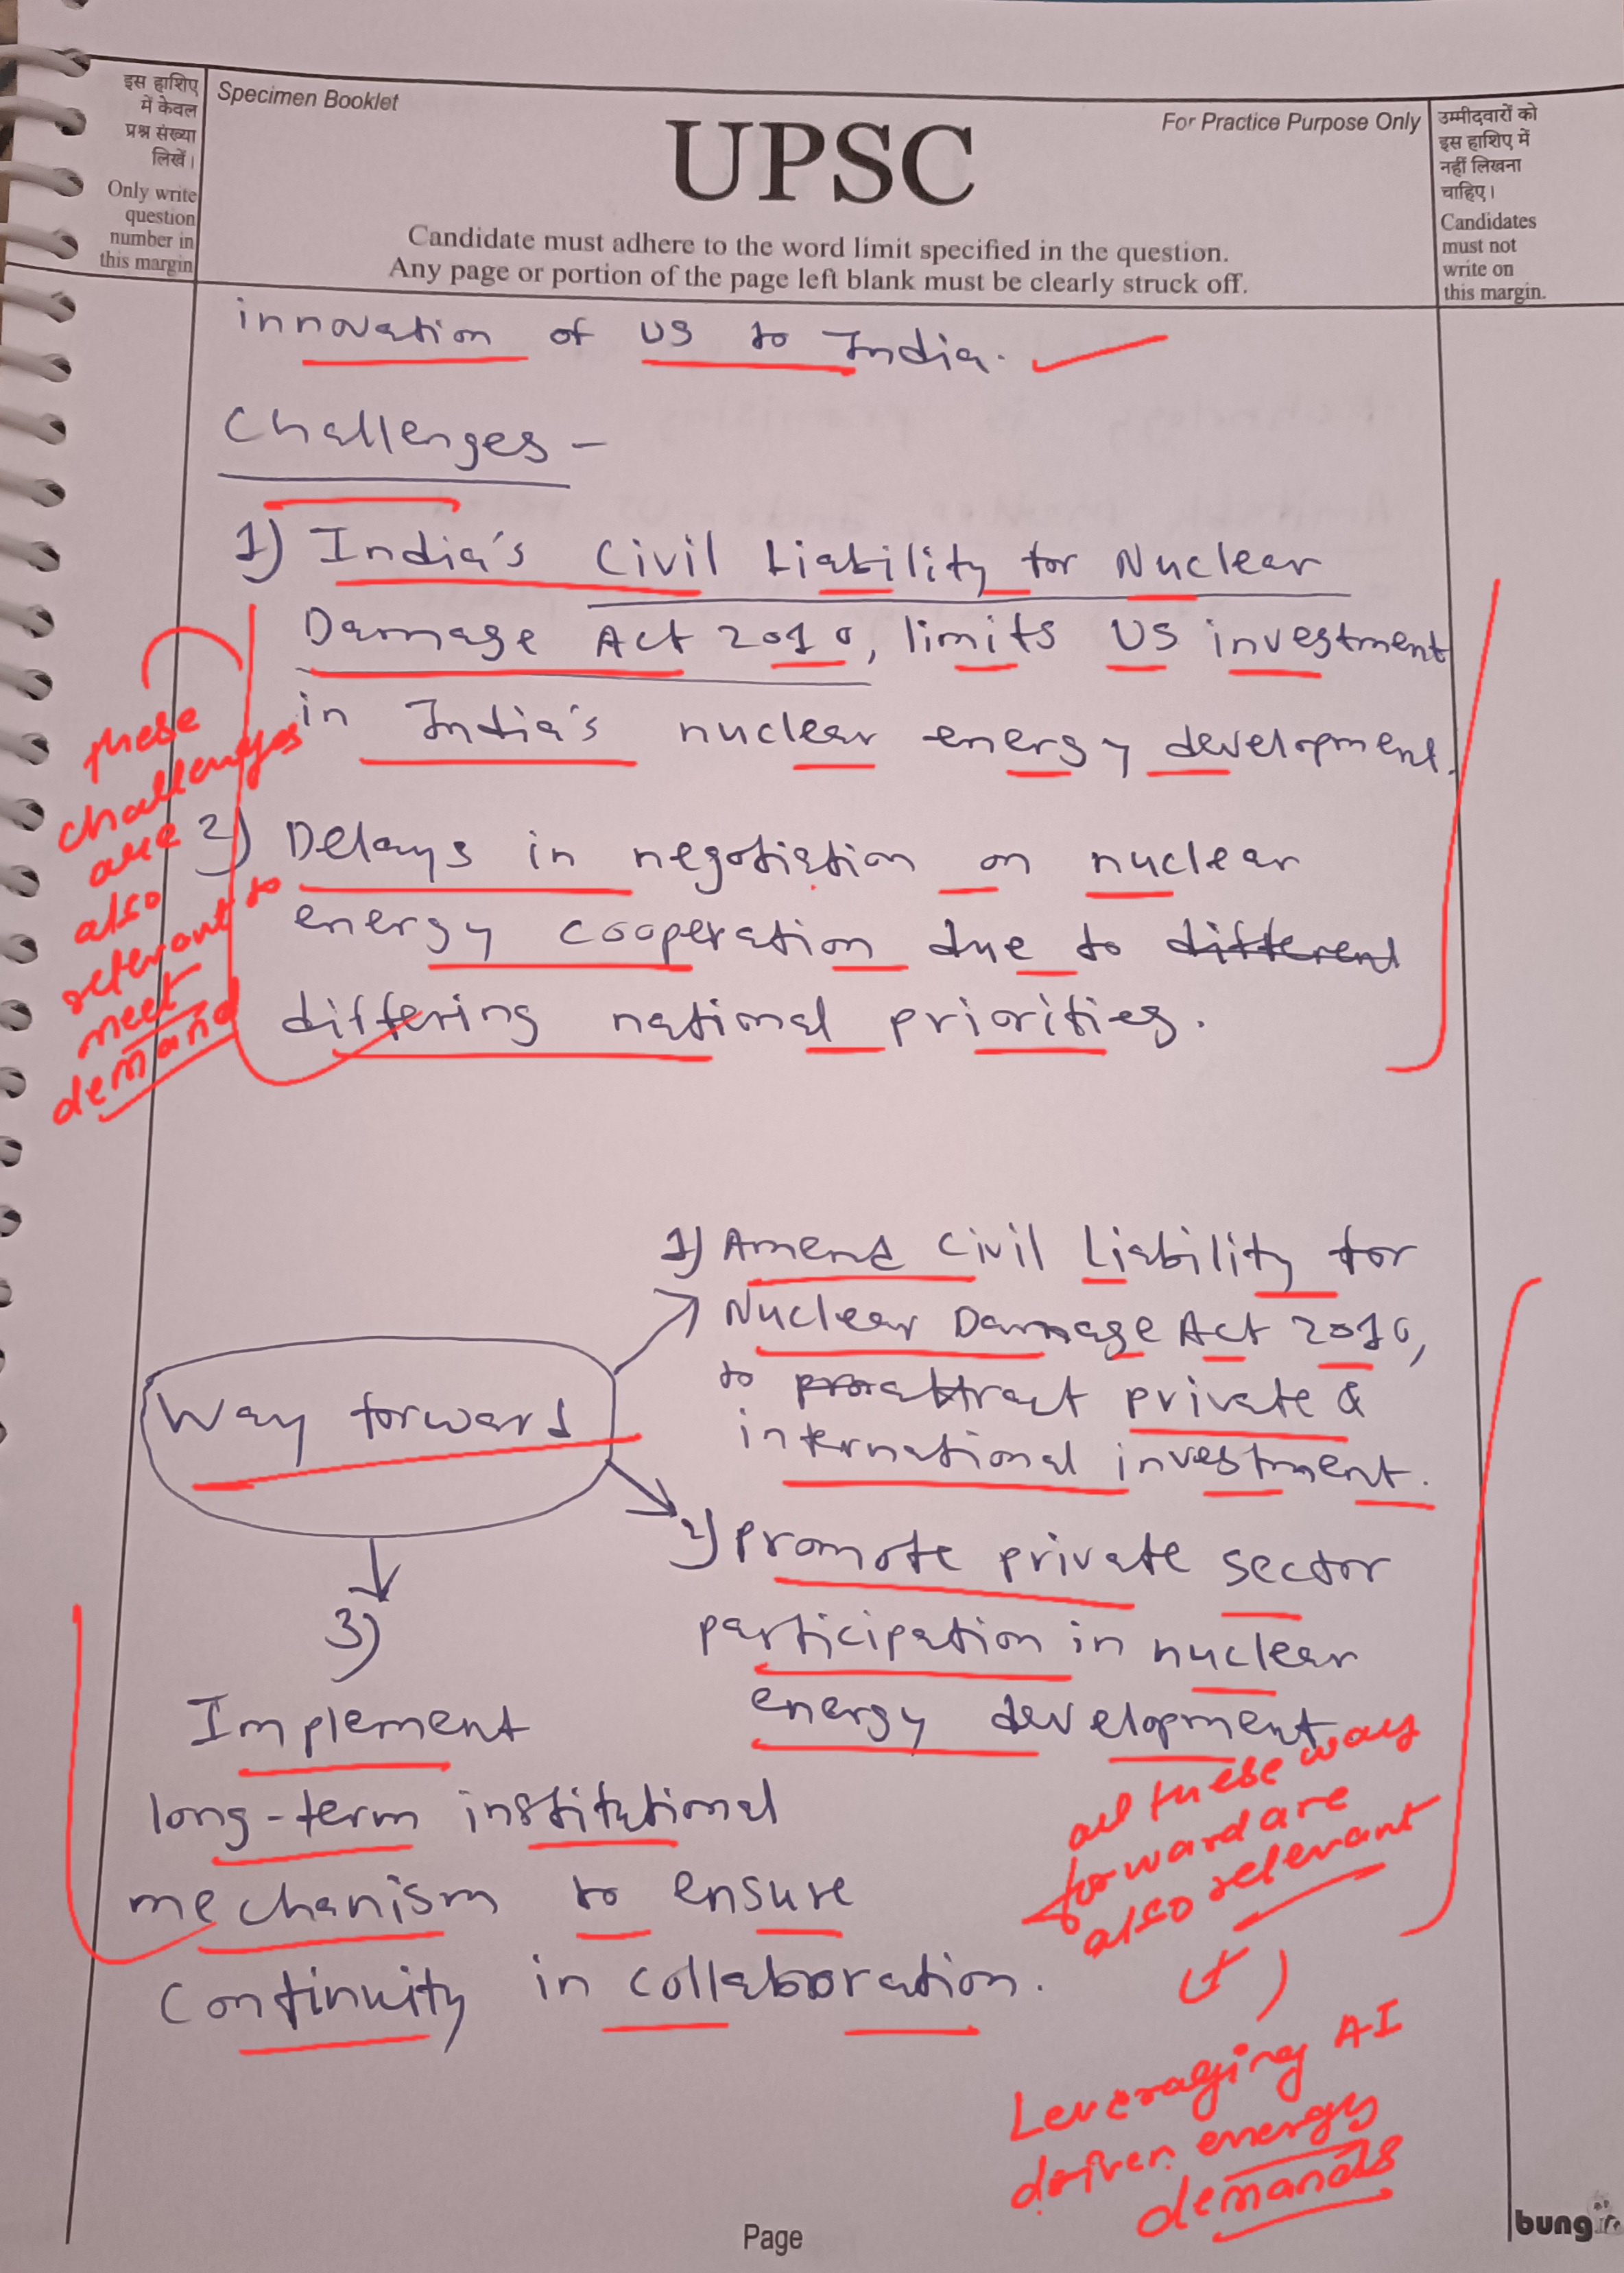 इस हाशिए
में केवल
प्रश्न संख्या
लिखें।
Only write
question
number in
this margin
Specimen Booklet
UPSC
For Practice Purpose Only
Candidate must adhere to the word limit specified in the question.
Any page or portion of the page left blank must be clearly struck off.
उम्मीदवारों को
इस हाशिए में
नहीं लिखना
चाहिए।
Candidates
must not
write on
this margin.
innovation of US to India.
Challenges -
1) India's Civil Liability for Nuclear
Damage Act 2010, limits US investment
in India's nuclear energy development.
2) Delays in negotiation on nuclear
energy cooperation due to different
differing national priorities.
these
challenges
are
also
relevant to
meet
demand
Way forward
1) Amend Civil Liability for
Nuclear Damage Act 2010,
to attract private &
international investment.
2) Promote private sector
participation in nuclear
energy development
3)
Implement
long-term institutional
mechanism to ensure
continuity in collaboration.
all these ways
forward are
also relevant
(+)
Leveraging AI
driven energy
demands
Page
bung